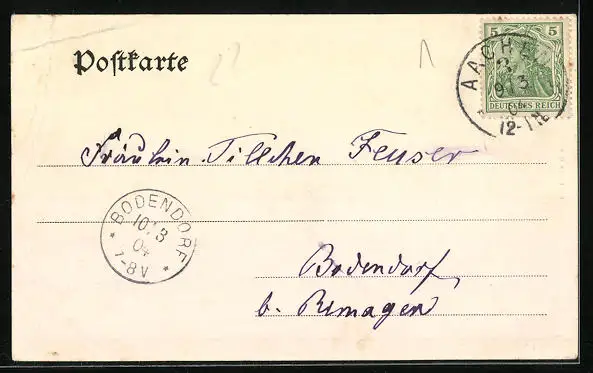 Postkarte
5 5
DEUTSCHES REICH
AACHEN
3
9.3
12-1N
Fräulein Tillchen Feuser
BODENDORF
10.3
04
7-8V
Bodendorf
b. Remagen